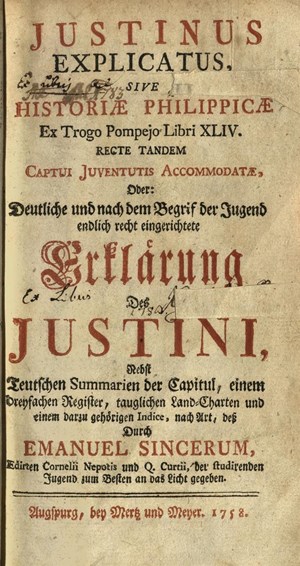 JUSTINUS
EXPLICATUS,
SIVE
HISTORIÆ PHILIPPICÆ
Ex Trogo Pompejo Libri XLIV.
RECTE TANDEM
CAPTUI JUVENTUTIS ACCOMMODATÆ,
Oder:
Deutliche und nach dem Begrif der Jugend
endlich recht eingerichtete
Erklärung
Ex Libris
Deß
JUSTINI,
Nebst
Teutschen Summarien der Capitul, einem
dreyfachen Register, tauglichen Land-Charten und
einem darzu gehörigen Indice, nach Art, deß
Durch
EMANUEL SINCERUM,
Ædirten Cornelii Nepotis und Q. Curtii, der studirenden
Jugend zum Besten an das Licht gegeben.
Augspurg, bey Mertz und Meyer. 1758.